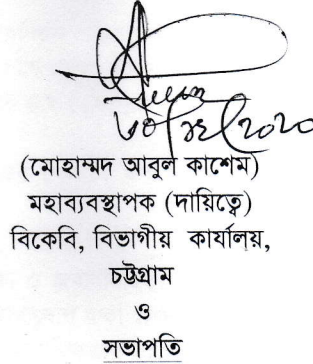 ৩০/১২/২০২০
(মোহাম্মদ আবুল কাশেম)
মহাব্যবস্থাপক (দায়িত্বে)
বিকেবি, বিভাগীয় কার্যালয়,
চট্টগ্রাম
ও
সভাপতি